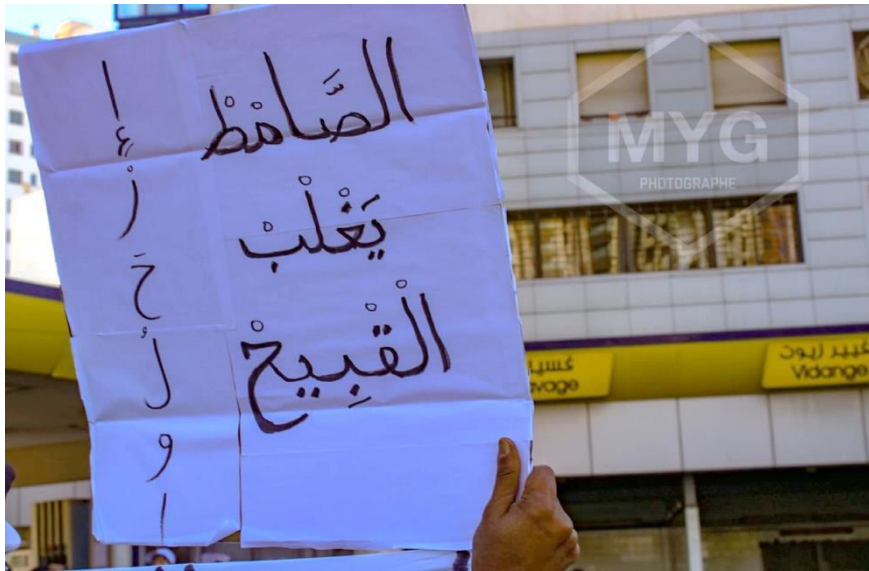 الصَّامْطْ
يَغْلْبْ
الْقْبِيحْ
إ
رْ
حَ
لُ
و
ا
MYG
PHOTOGRAPHE
avage
غيير زيوت
Vidange